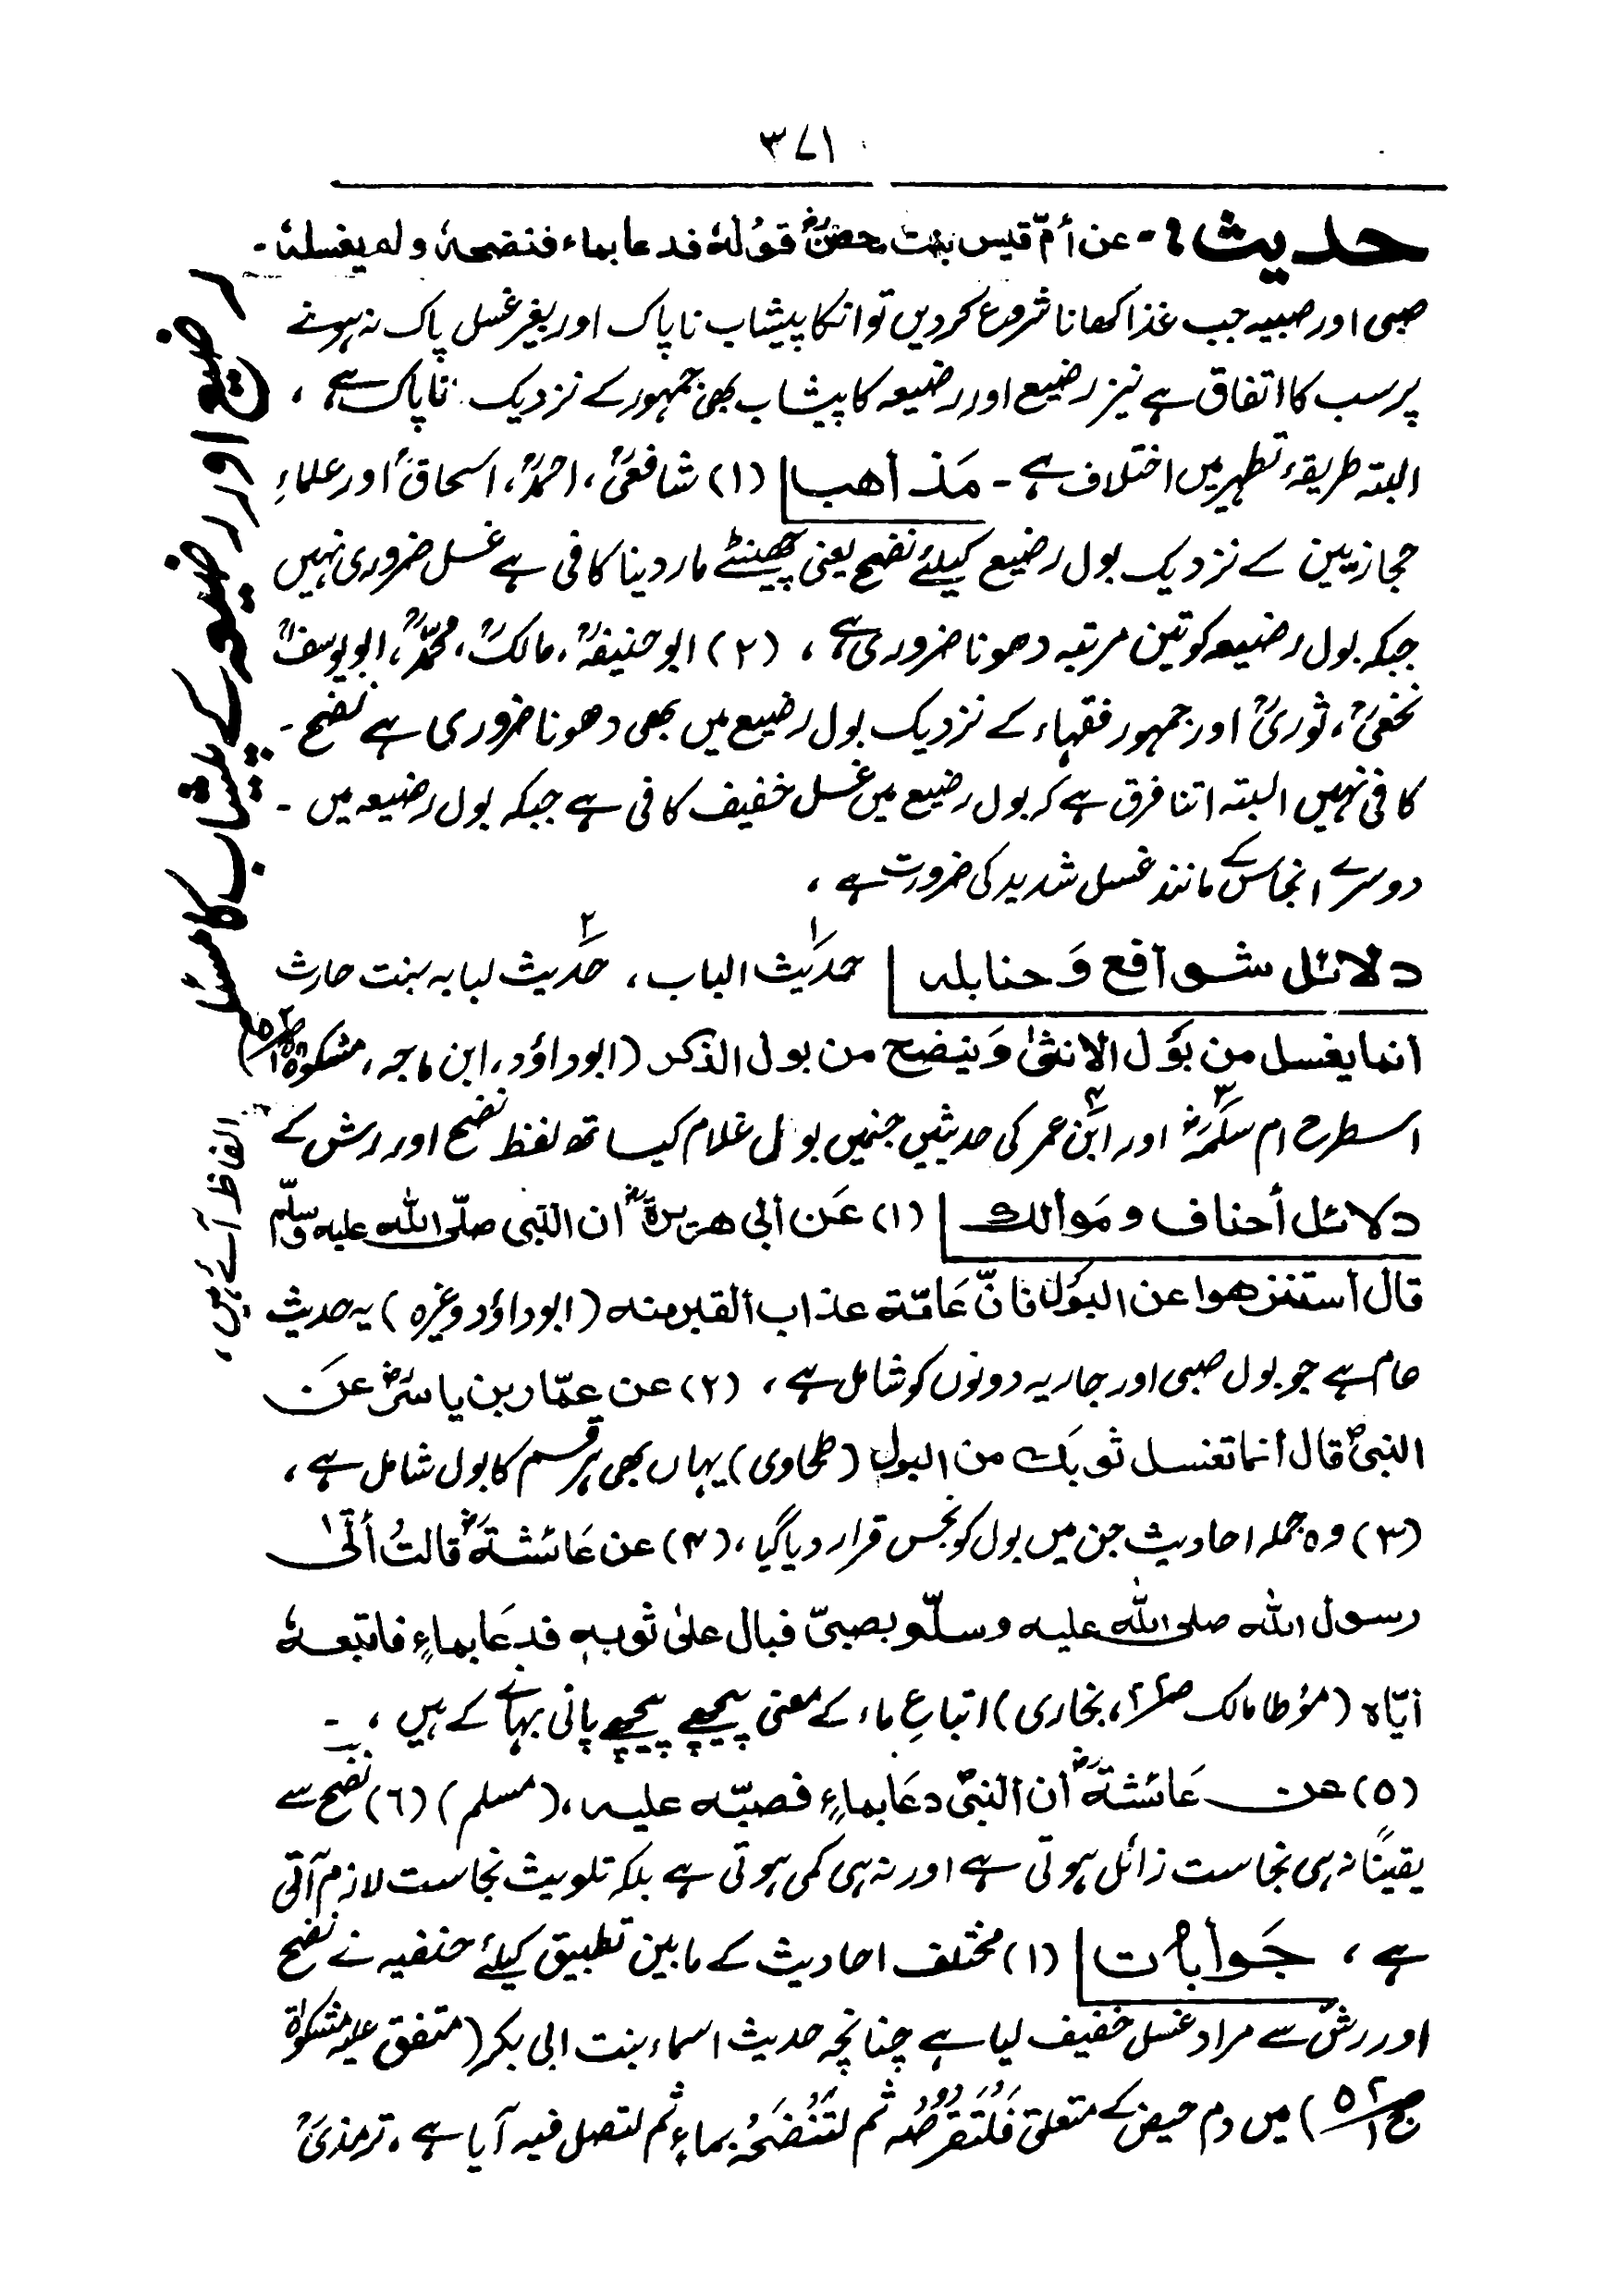 ۳۷۱
حدیث :- عن أمّ قیس بنت محصنؓ قولہٗ فدعا بماء فنضحہٗ ولم یغسلہٗ -
صبی اور صبیہ جب غذا کھانا شروع کردیں تو انکا پیشاب ناپاک اور بغیر غسل پاک نہ ہونے
پر سب کا اتفاق ہے نیز رضیع اور رضیعہ کا پیشاب بھی جمہور کے نزدیک ناپاک ہے ،
البتہ طریقۂ تطہیر میں اختلاف ہے - مَذاھب (۱) شافعیؒ، احمدؒ، اسحاقؒ اور علماءِ
حجازیین کے نزدیک بول رضیع کیلئے نضح یعنی چھینٹے مار دینا کافی ہے غسل ضروری نہیں
جبکہ بول رضیعہ کو تین مرتبہ دھونا ضروری ہے ، (۲) ابوحنیفہؒ، مالکؒ، محمدؒ، ابویوسفؒ
نخعیؒ، ثوریؒ اور جمہور فقہاء کے نزدیک بول رضیع میں بھی دھونا ضروری ہے نضح -
کافی نہیں البتہ اتنا فرق ہے کہ بول رضیع میں غسل خفیف کافی ہے جبکہ بول رضیعہ میں -
دوسرے انجاس کے مانند غسل شدید کی ضرورت ہے ،
دلائل شوافع وَ حنابلہ ۱ حدیث الباب ، ۲ حدیث لبابہ بنت حارث
انما یغسل من بَول الانثیٰ وَینضح من بول الذکر (ابوداؤد، ابن ماجہ، مشکوٰۃ
اسطرح ۳ ام سلمہؓ اور ۴ ابن عمر کی حدیثیں جنمیں بول غلام کیساتھ لفظ نضح اور رش کے
الفاظ آئے ہیں ،
دلائل أحناف و مَوالک (۱) عَن أبی ھریرۃؓ ان النّبی صلّی اللہ علیہ وسلّم
قال استنزھوا عن البَول فانّ عَامّۃ عذاب القبر منہ (ابوداؤد وغیرہ) یہ حدیث
عام ہے جو بول صبی اور جاریہ دونوں کو شامل ہے ، (۲) عن عمّار بن یاسرؓ عَن
النبیؐ قال أنما تغسل ثوبَک من البول (طحاوی) یہاں بھی ہر قسم کا بول شامل ہے ،
(۳) وہ جملہ احادیث جن میں بول کو نجس قرار دیا گیا ، (۴) عن عَائشۃؓ قالتُ أتیٰ
رسول اللہ صلی اللہ علیہ وسلّم بصبیّ فبال علیٰ ثوبہٖ فدعَا بماءٍ فاتبعہٗ
ایّاہ (مؤطا مالک ، بخاری) اتباعِ ماء کے معنی پیچھے پیچھے پانی بہانے کے ہیں ، -
(۵) عن عَائشۃؓ أن النبیؐ دعَا بماءٍ فصبّہ علیہ ، (مسلم) (٦) نضح سے
یقینًا نہ ہی نجاست زائل ہوتی ہے اور نہ ہی کمی ہوتی ہے بلکہ تلویث نجاست لازم آتی
ہے ، جَوابات (۱) مختلف احادیث کے مابین تطبیق کیلئے حنفیہ نے نضح
اور رش سے مراد غسل خفیف لیا ہے چنانچہ حدیث اسماء بنت ابی بکر (متفق علیہ مشکوٰۃ
) میں دم حیض کے متعلق فَلْتَقْرُصْہ ثم لتَنْضَحْہُ بماءٍ ثم لتصل فیہ آیا ہے ، ترمذیؒ
رضیع اور رضیعہ کے پیشاب کا مسئلہ